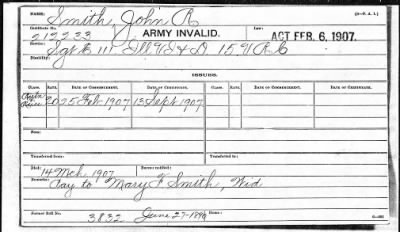 NAME: Smith, John R (3-P. A. 1.)
Certificate No. 212233 ARMY INVALID. Law: ACT FEB. 6, 1907.
Service: Sgt E 111 Ill V I & D 15 V R C
Disability:
ISSUES.
CLASS. RATE. DATE OF COMMENCEMENT. DATE OF CERTIFICATE. CLASS. RATE. DATE OF COMMENCEMENT. DATE OF CERTIFICATE.
20 25 Feb 1907 13 Sept 1907
Transferred from:
Died: 14 Mch 1907 Bureau notified:
Remarks: Pay to Mary F Smith, Wid
Former Roll No. 3832 June 27-1890 Home: